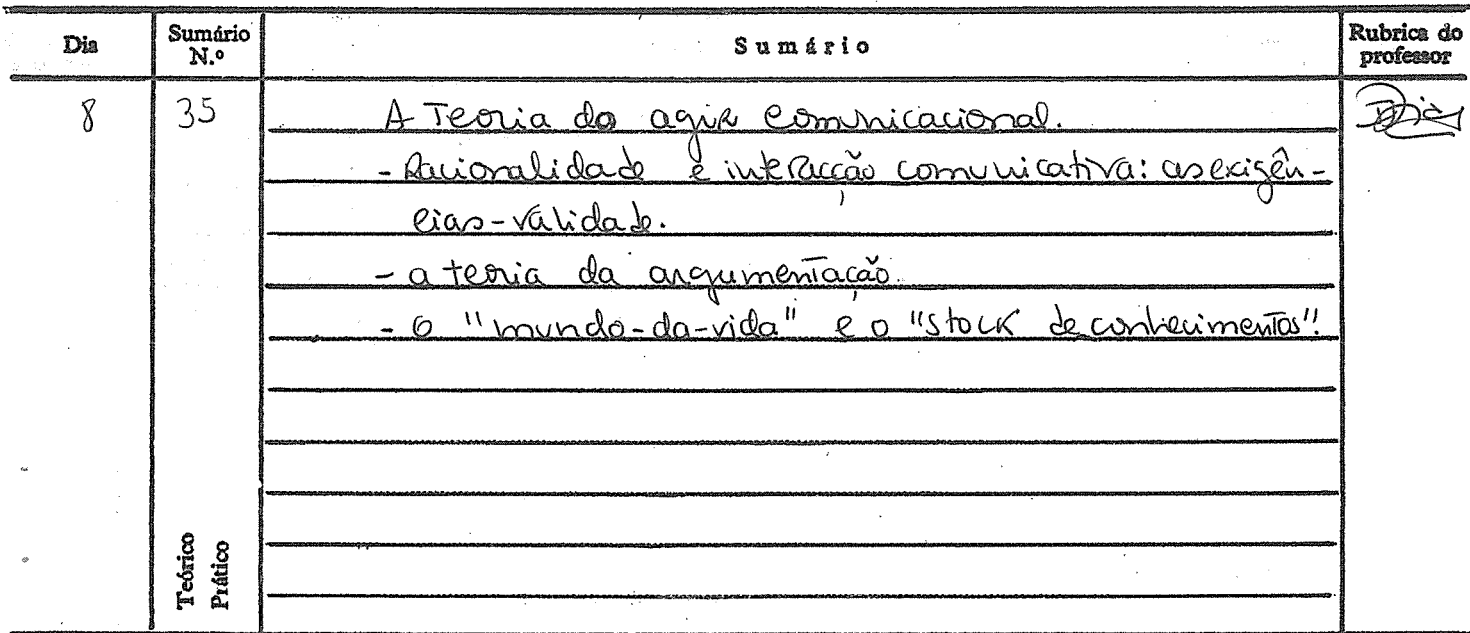 Dia Sumário N.º Sumário Rubrica do professor
8 35 A Teoria do agir comunicacional.
- Racionalidade e interacção comunicativa: as exigên-
cias-validade.
- a teoria da argumentação.
- O "mundo-da-vida" e o "stock de conhecimentos".
Teórico
Prático